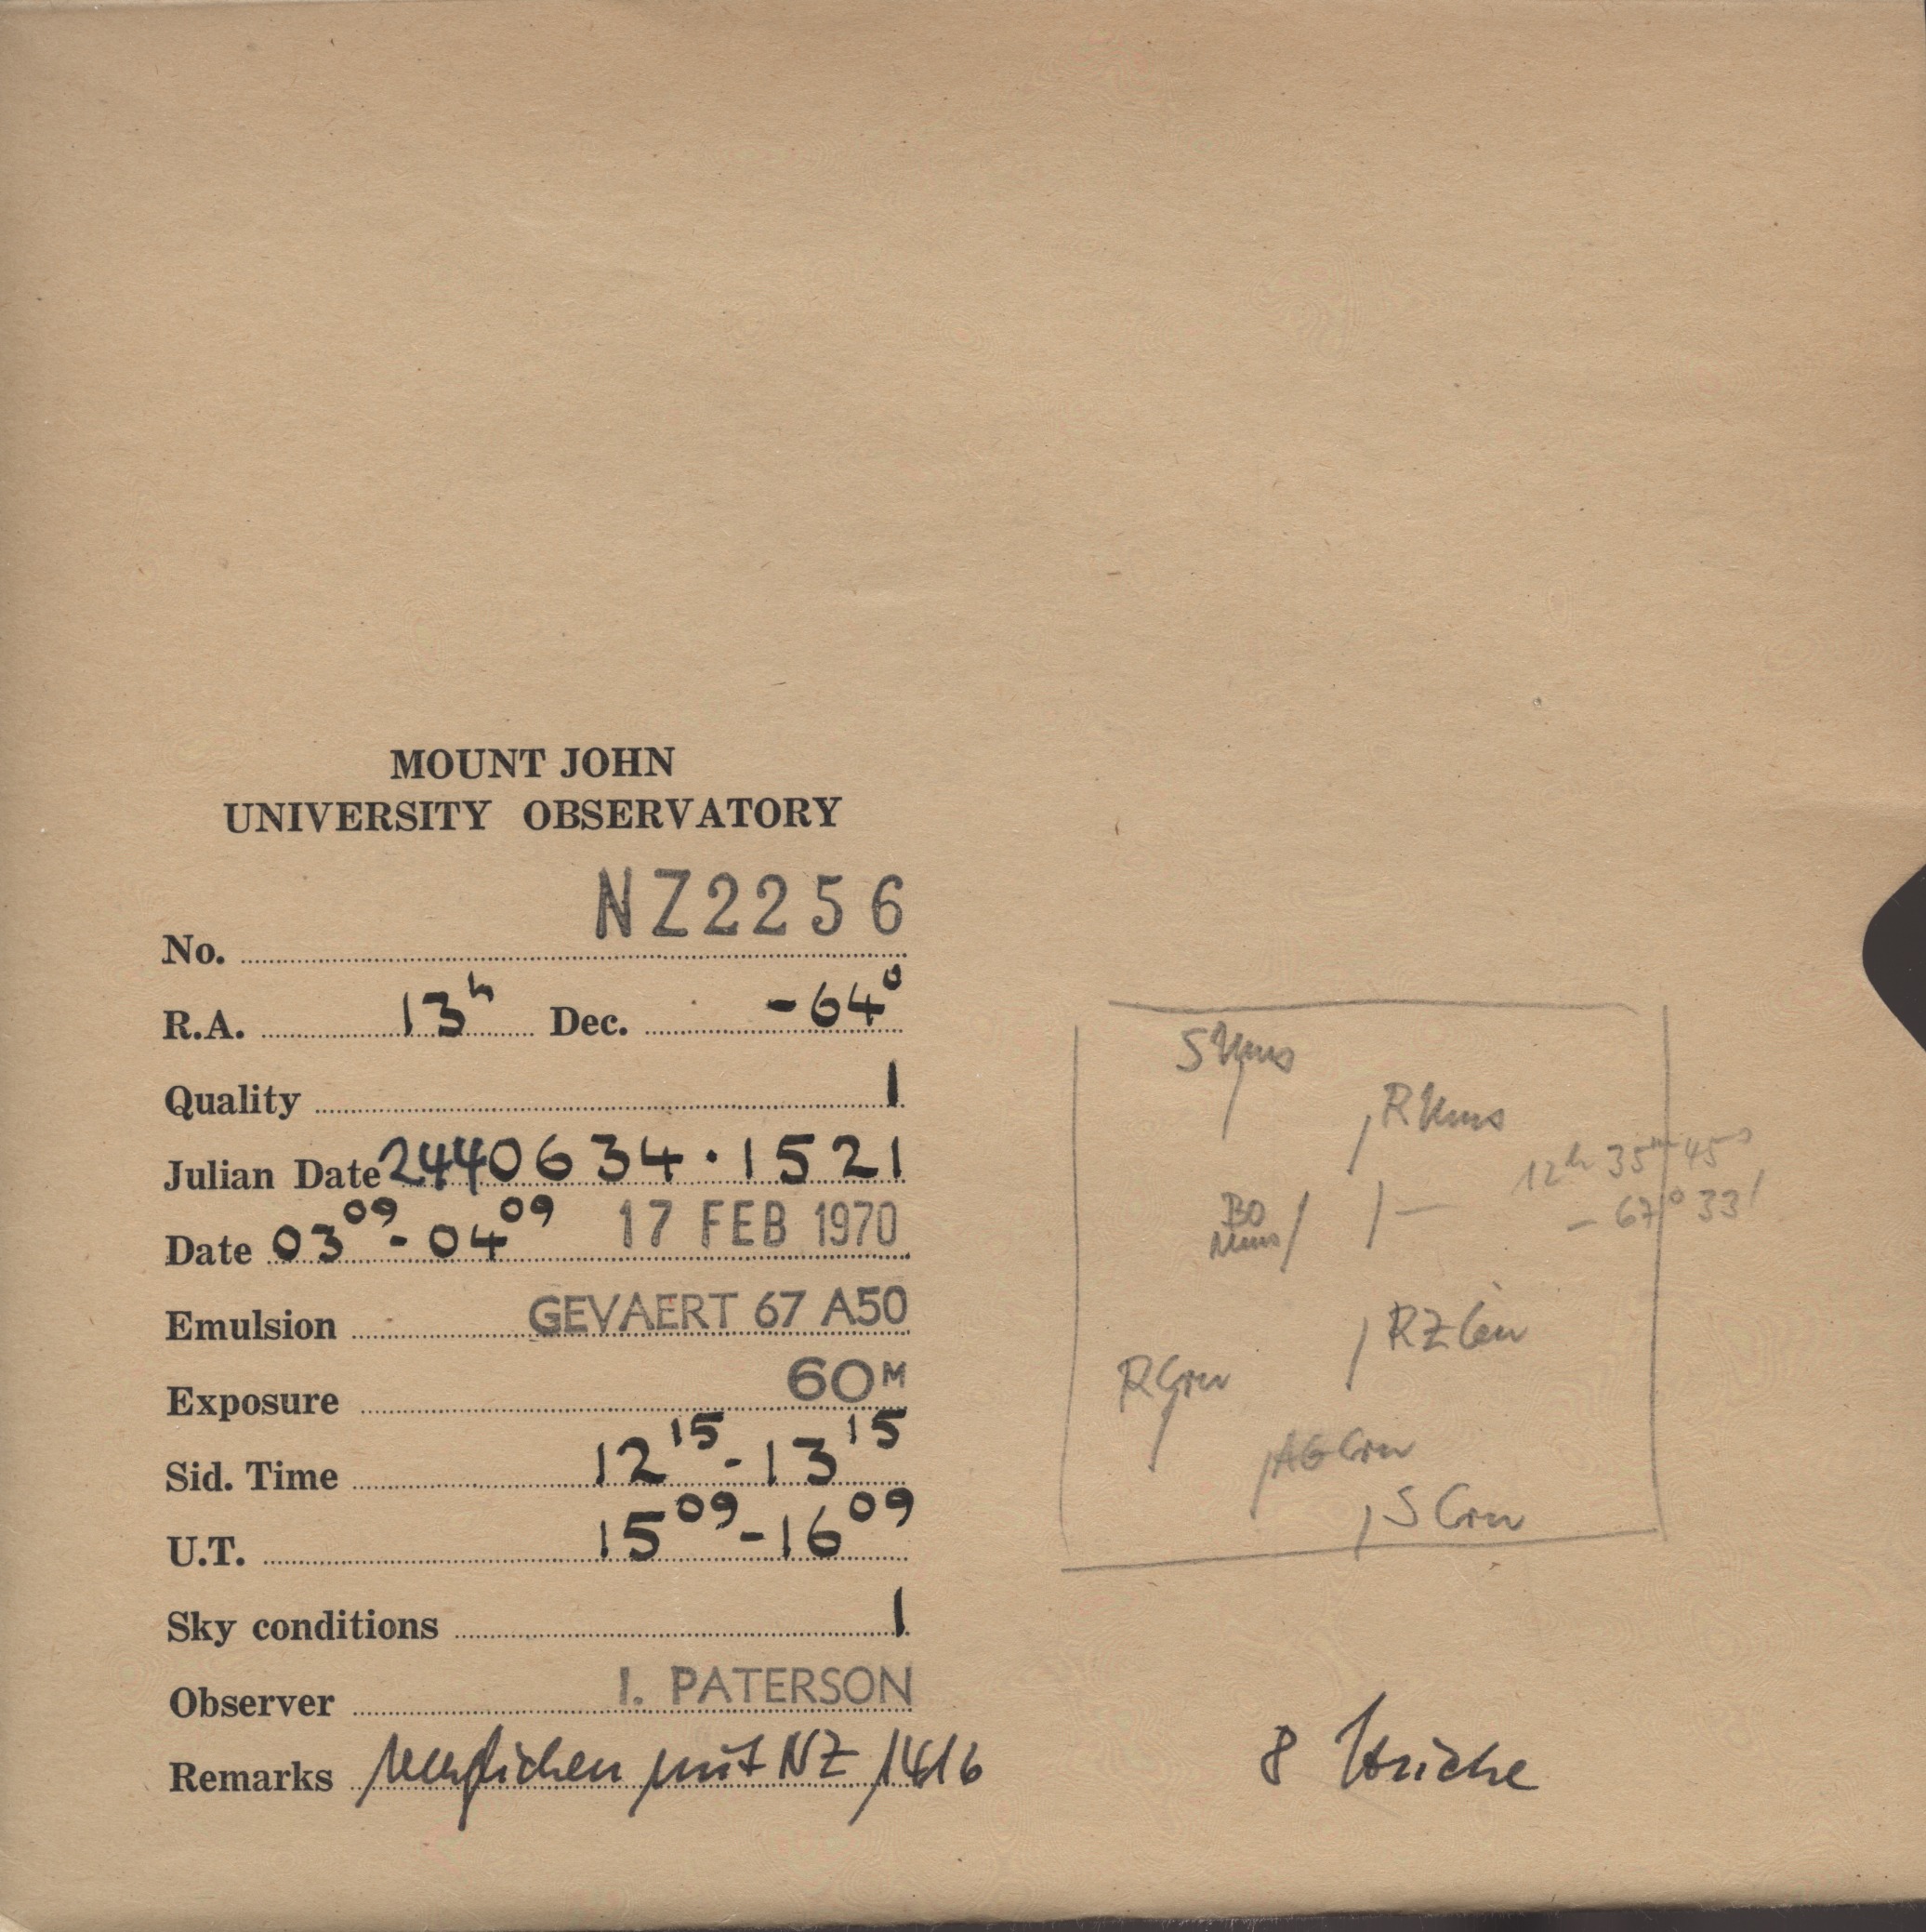 MOUNT JOHN
UNIVERSITY OBSERVATORY
No. NZ2256
R.A. 13h Dec. -64°
Quality 1
Julian Date 2440634.1521
Date 03 09 - 04 09 17 FEB 1970
Emulsion GEVAERT 67 A50
Exposure 60M
Sid. Time 12 15 - 13 15
U.T. 15 09 - 16 09
Sky conditions 1
Observer I. PATERSON
Remarks verglichen mit NZ 1416
S Mus
R Mus
12h 35m 45s
- 67° 33'
BO
Mus
RZ Cen
R Cru
AG Cru
S Cru
8 Striche